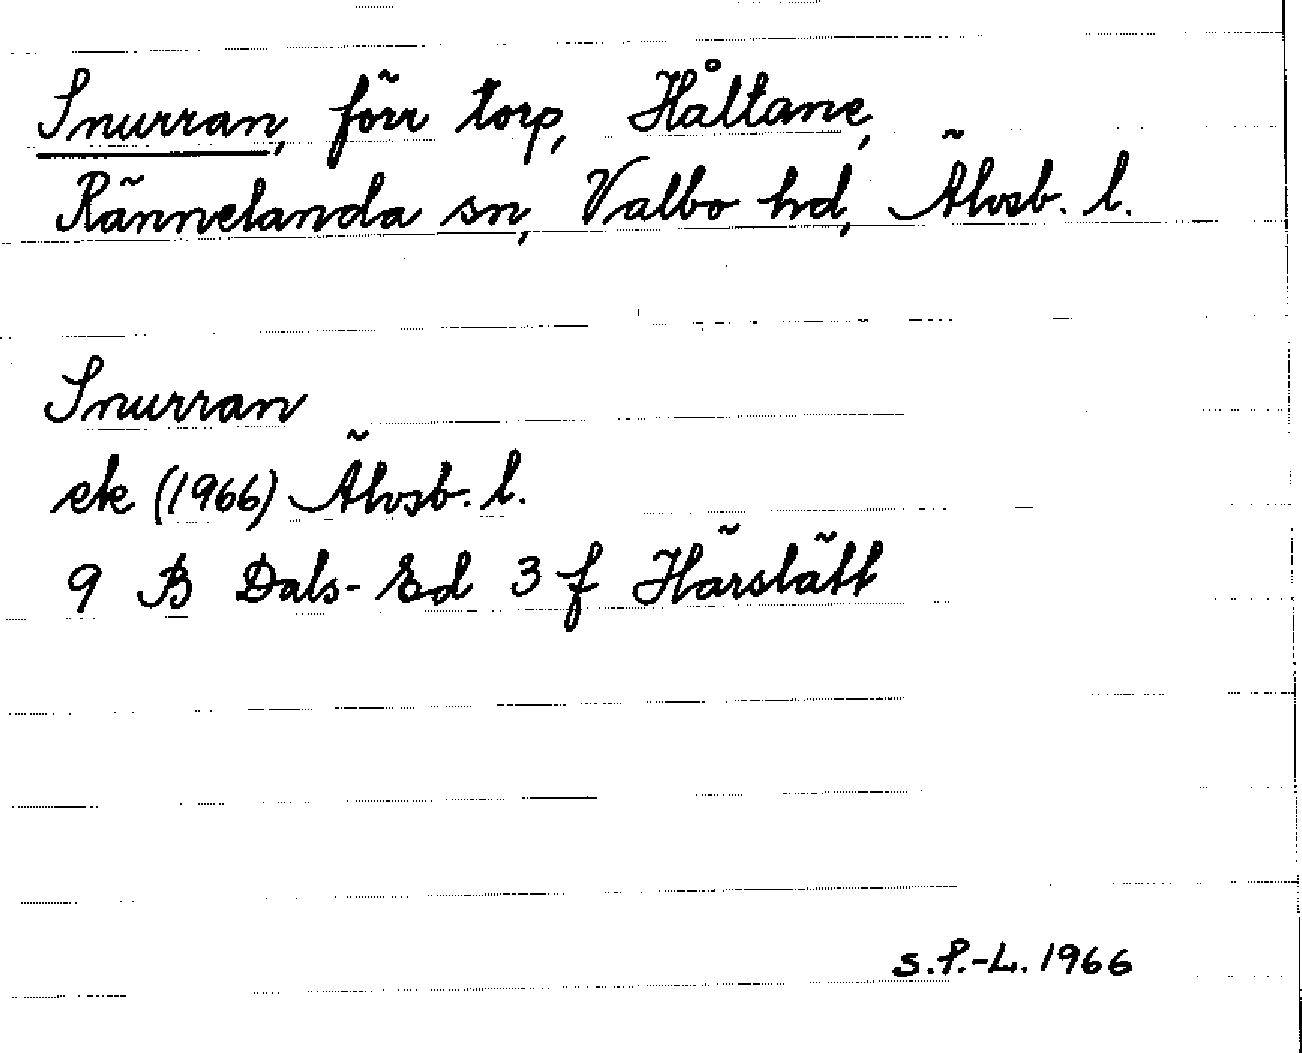 Snurran, förr torp, Håltane,
Rännelanda sn, Valbo hd, Älvsb. l.
Snurran
ek (1966) Älvsb. l.
9 B Dals-Ed 3 f Härslätt
S.P.-L. 1966